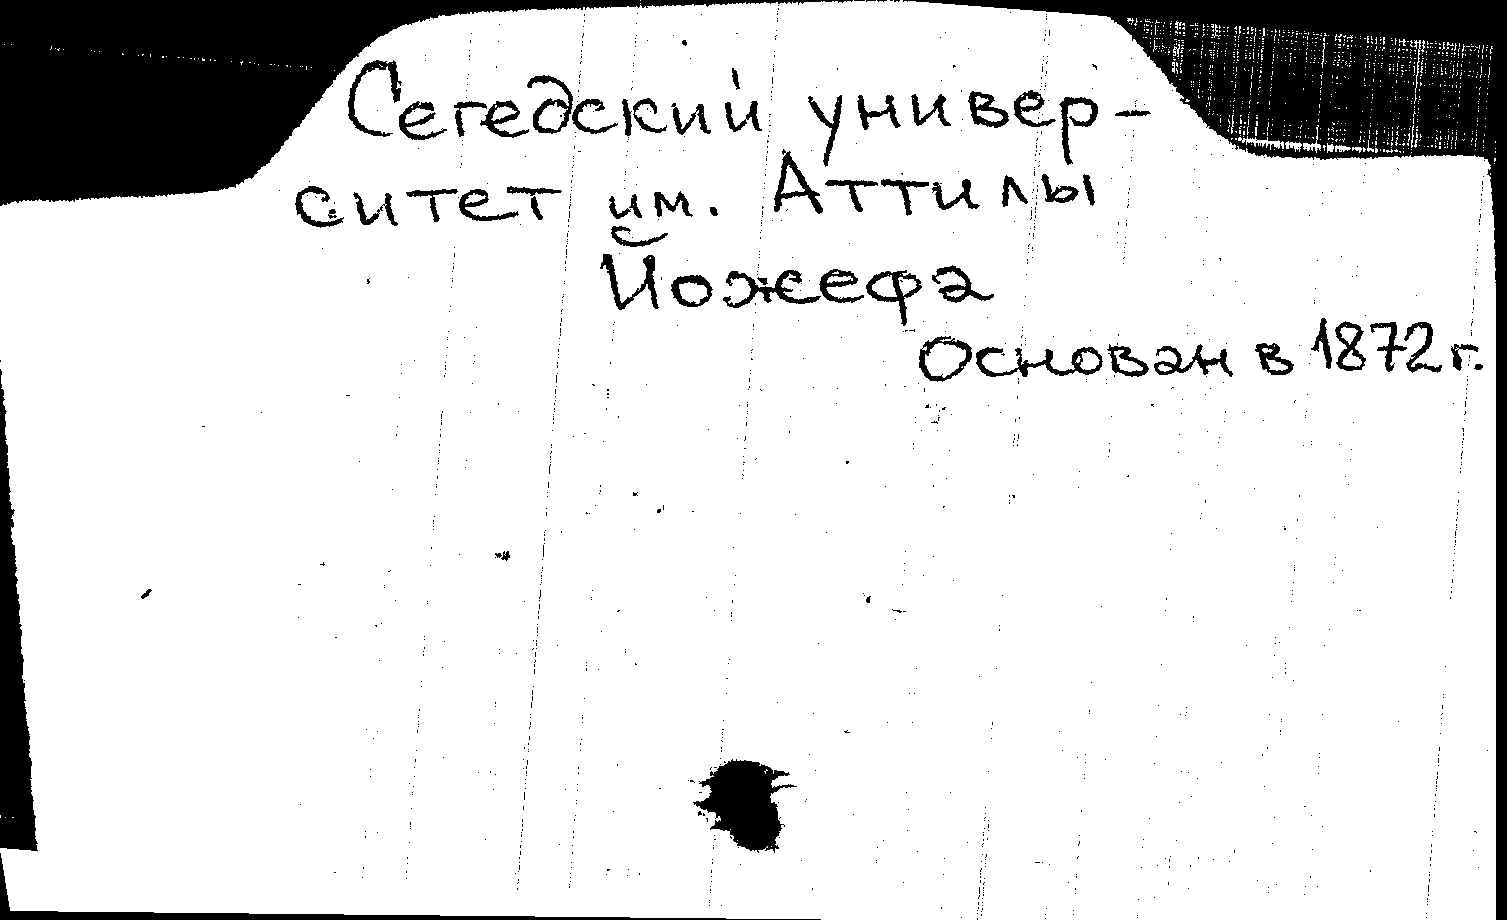 Сегедский универ-
ситет им. Аттилы
Йожефа
Основан в 1872 г.